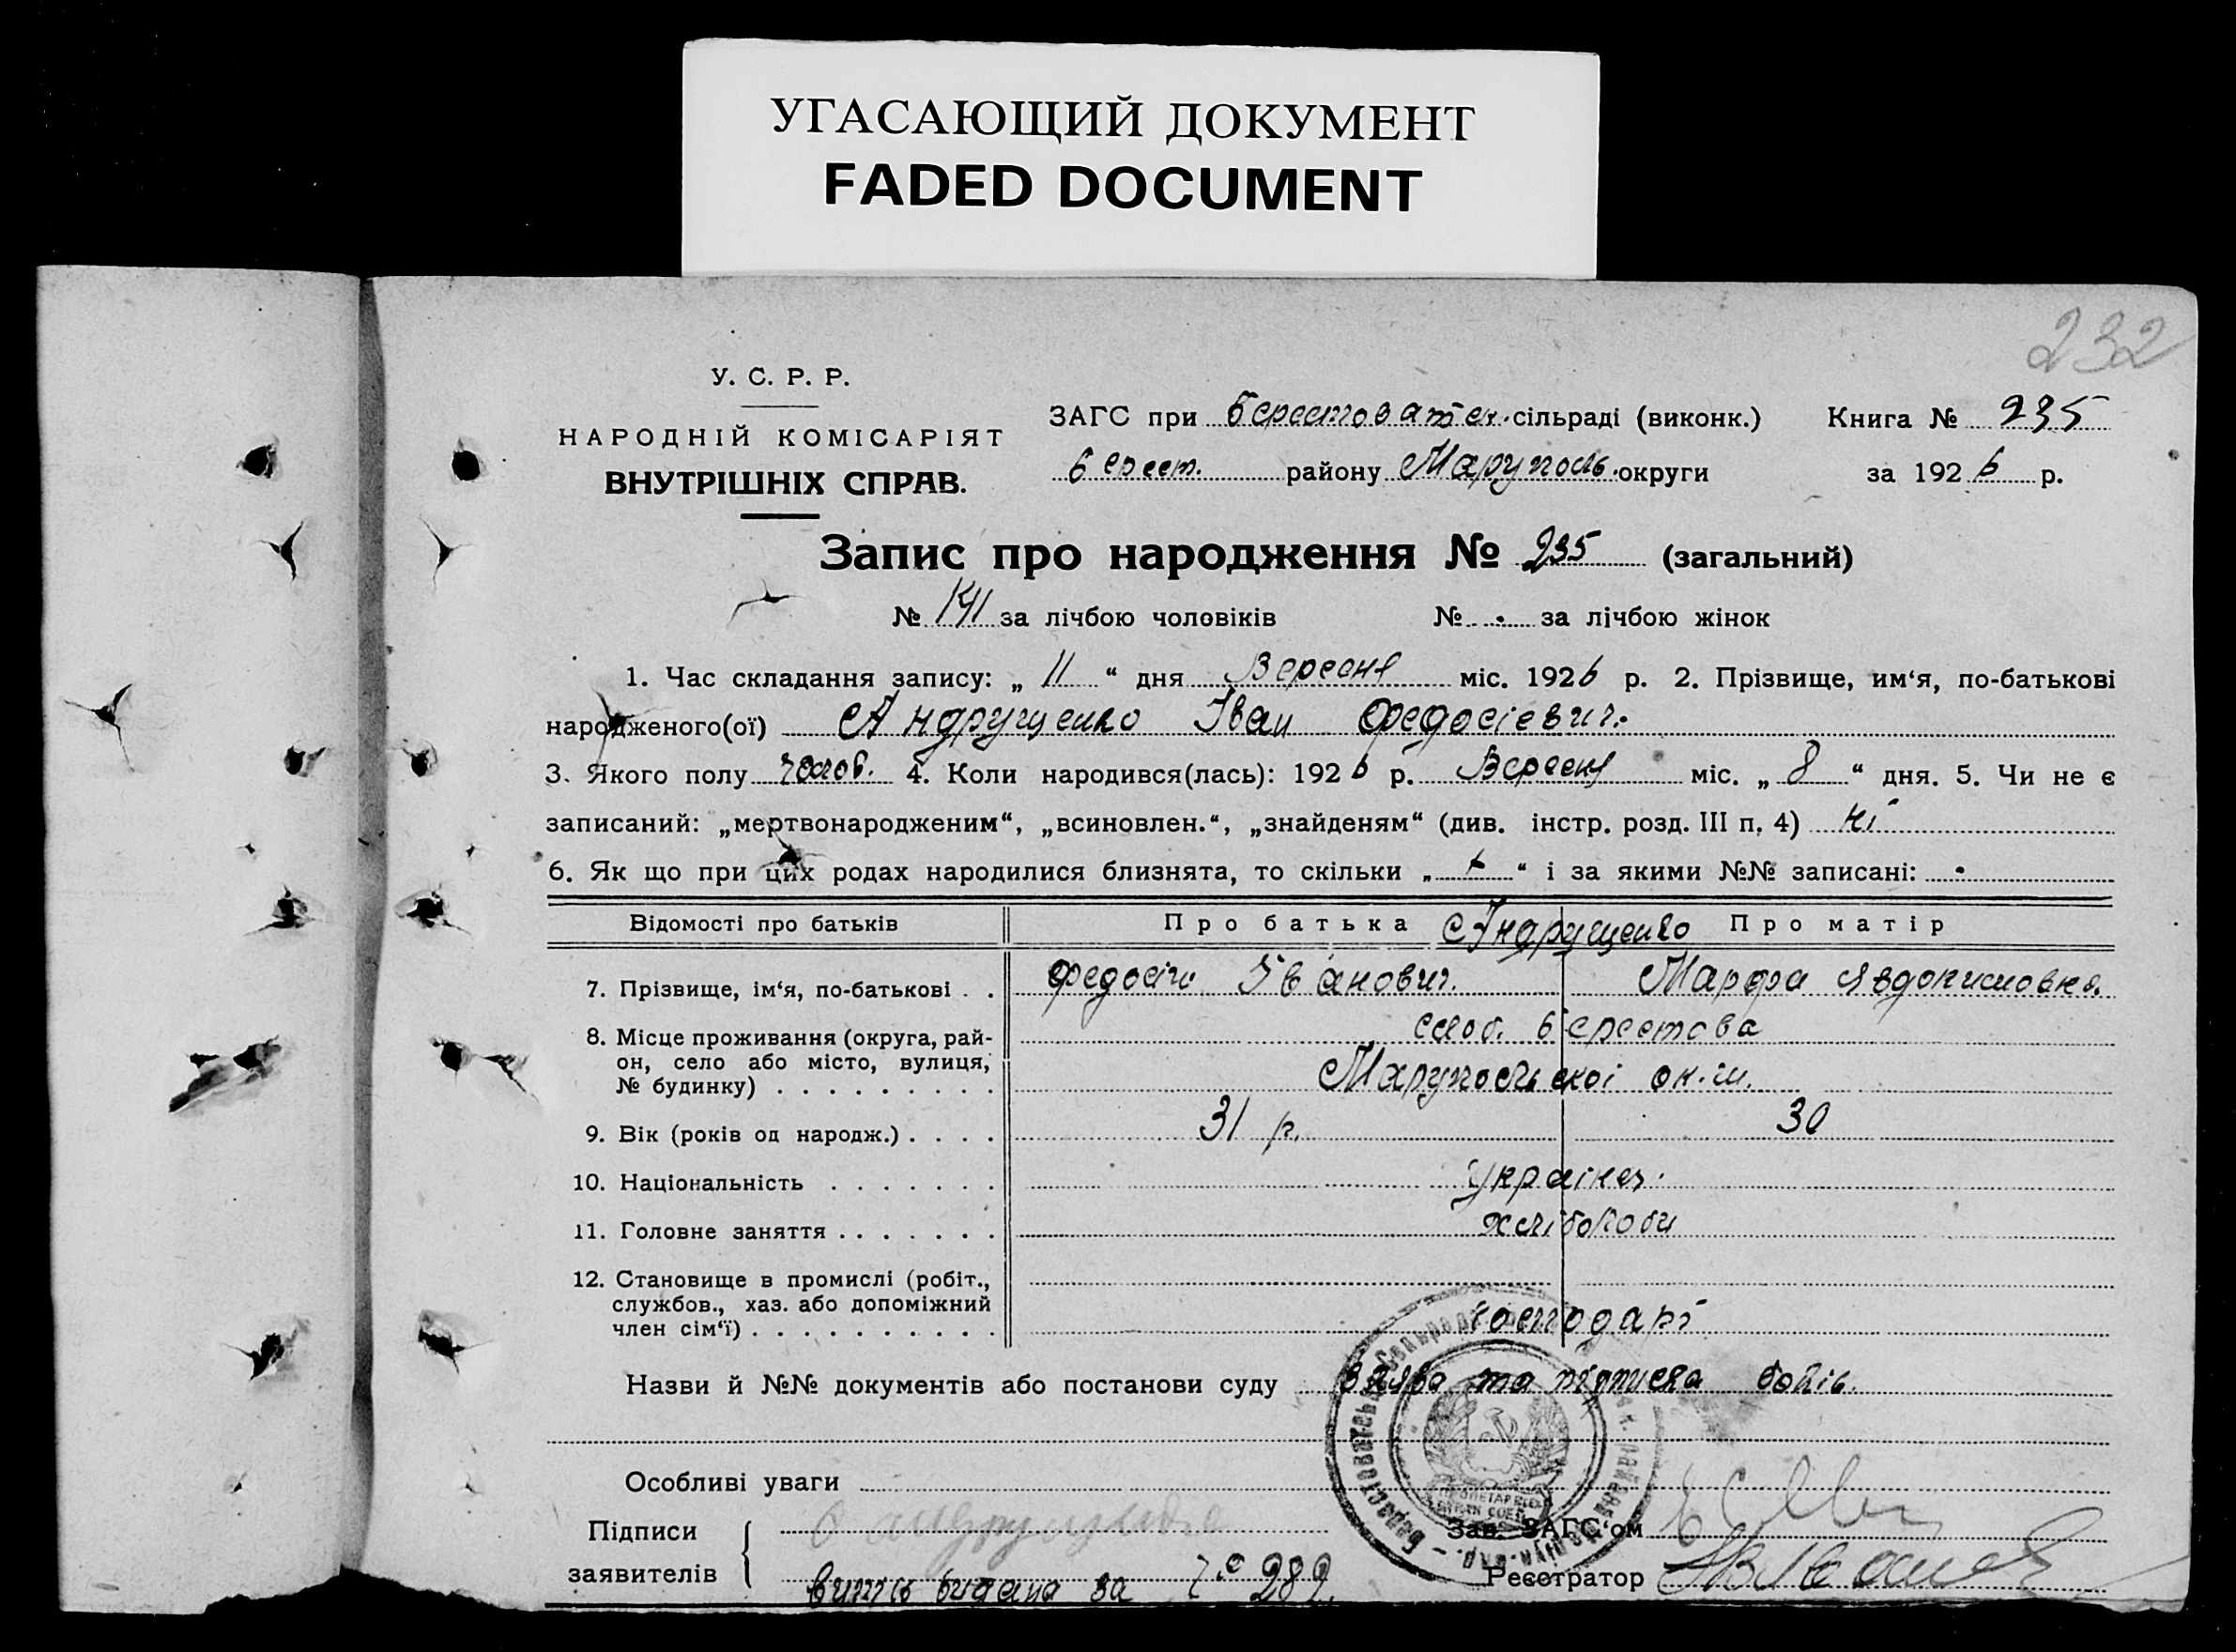 УГАСАЮЩИЙ ДОКУМЕНТ
FADED DOCUMENT
232
У. С. Р. Р.
НАРОДНІЙ КОМІСАРІЯТ
ВНУТРІШНІХ СПРАВ.
ЗАГС при Берестоватск. сільраді (виконк.) Книга № 235
Берест. району Маруполь. округи за 1926 р.
Запис про народження № 235 (загальний)
№ 141 за лічбою чоловіків № . за лічбою жінок
1. Час складання запису: „ 11 “ дня Вересня міс. 1926 р. 2. Прізвище, им‘я, по-батькові
народженого(ої) Андрущенко Іван Федосієвич.
3. Якого полу чолов. 4. Коли народився(лась): 1926 р. Вересня міс. „ 8 “ дня. 5. Чи не є
записаний: „мертвонародженим“, „всиновлен.“, „знайденям“ (див. інстр. розд. III п. 4) ні
6. Як що при цих родах народилися близнята, то скільки „ “ і за якими №№ записані: .
Відомості про батьків Про батька Андрущенко Про матір
7. Прізвище, ім‘я, по-батькові . . Федосій Іванович. Марфа Явдокимовна.
8. Місце проживання (округа, рай-
он, село або місто, вулиця,
№ будинку) . . . . . . . . .
слоб. Берестова
Марупольскої ок.
9. Вік (років од народж.) . . . . 31 р. 30
10. Національність . . . . . . . україн
11. Головне заняття . . . . . . . хлібороби
12. Становище в промислі (робіт.,
службов., хаз. або допоміжний
член сім‘ї) . . . . . . . . . .
господарі
Назви й №№ документів або постанови суду заява та підписка
Особливі уваги
Підписи
заявителів
Андрущенко
Зав. ЗАГС‘ом
Реєстратор
видана за № 282.